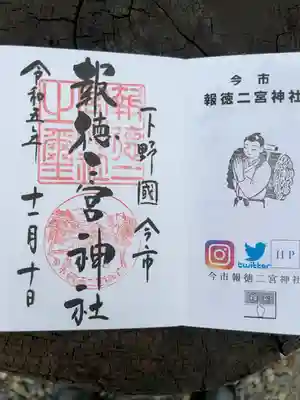 下野國 今市
報徳二宮神社
令和五年 十一月十日
今市
報徳二宮神社
twitter
HP
今市報徳二宮神社